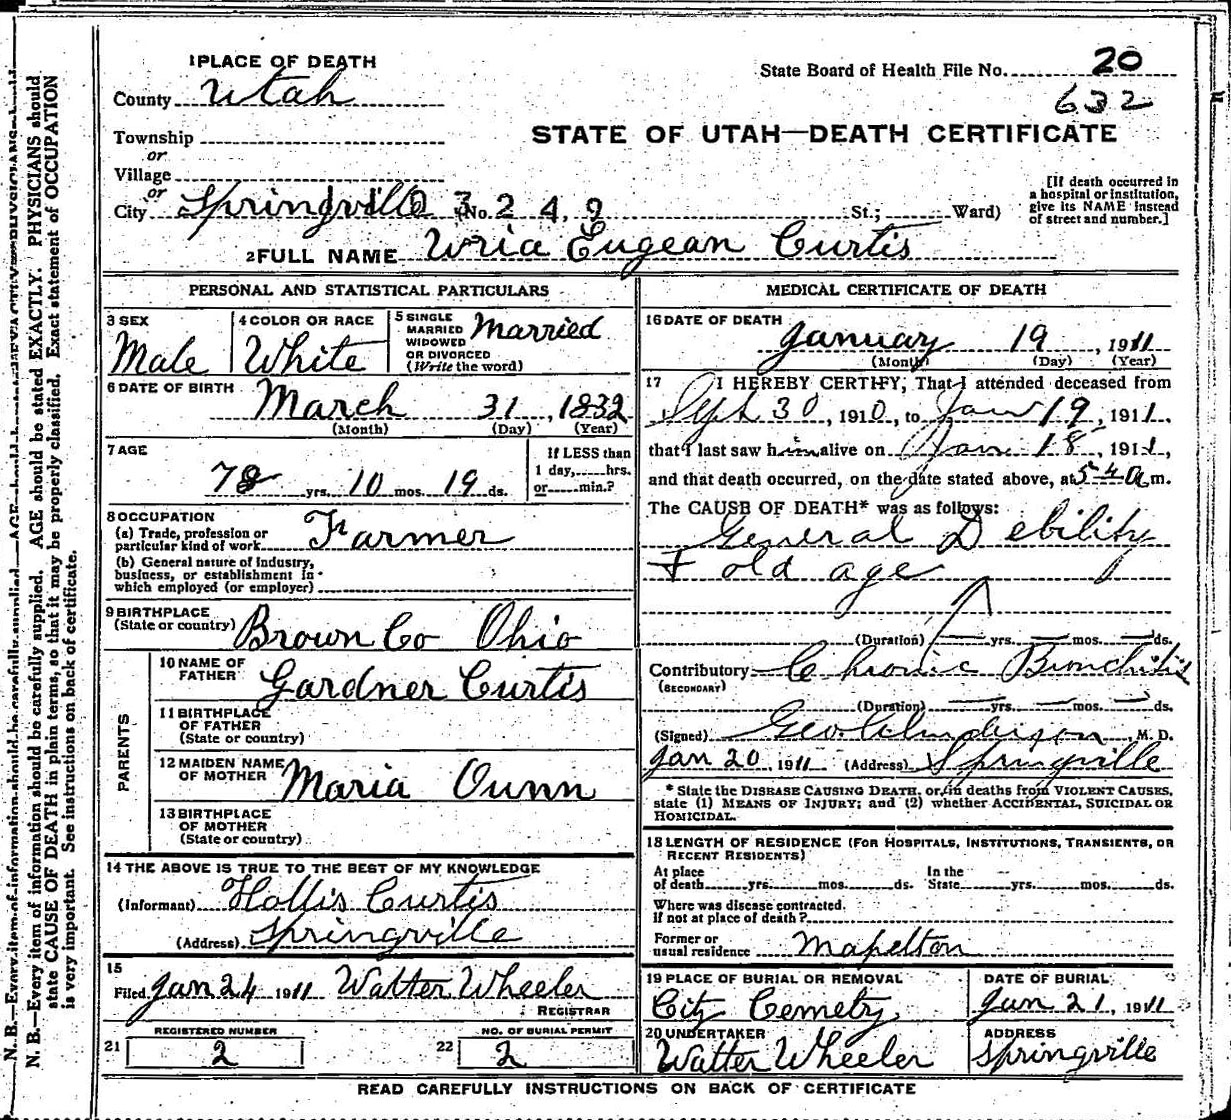 1 PLACE OF DEATH
County Utah
Township
or
Village
or
City Springville No. 1 0 3 2 4, 9 St.; Ward)
State Board of Health File No. 20
632
STATE OF UTAH—DEATH CERTIFICATE
[If death occurred in
a hospital or institution,
give its NAME instead
of street and number.]
2 FULL NAME Uria Eugean Curtis
PERSONAL AND STATISTICAL PARTICULARS
3 SEX
Male
4 COLOR OR RACE
White
5 SINGLE
MARRIED
WIDOWED
OR DIVORCED
(Write the word)
Married
6 DATE OF BIRTH
March 31, 1832
(Month) (Day) (Year)
7 AGE
78 yrs. 10 mos. 19 ds.
If LESS than
1 day, hrs.
or min.?
8 OCCUPATION
(a) Trade, profession or
particular kind of work Farmer
(b) General nature of Industry,
business, or establishment in
which employed (or employer)
9 BIRTHPLACE
(State or country) Brown Co Ohio
PARENTS
10 NAME OF
FATHER Gardner Curtis
11 BIRTHPLACE
OF FATHER
(State or country)
12 MAIDEN NAME
OF MOTHER Maria Dunn
13 BIRTHPLACE
OF MOTHER
(State or country)
14 THE ABOVE IS TRUE TO THE BEST OF MY KNOWLEDGE
(Informant) Hollis Curtis
(Address) Springville
15
Filed Jan 24 1911 Walter Wheeler
REGISTRAR
REGISTERED NUMBER
21 2
NO. OF BURIAL PERMIT
22 2
MEDICAL CERTIFICATE OF DEATH
16 DATE OF DEATH
January 19, 1911
(Month) (Day) (Year)
17 I HEREBY CERTIFY, That I attended deceased from
Sept 30, 1910, to Jan 19, 1911.
that I last saw him alive on Jan 18, 1911,
and that death occurred, on the date stated above, at 5 40 a m.
The CAUSE OF DEATH* was as follows:
General Debility
+ old age
(Duration) yrs. mos. ds.
Contributory Chronic Bronchitis
(SECONDARY)
(Duration) yrs. mos. ds.
(Signed) Geo , M. D.
Jan 20, 1911 (Address) Springville
* State the DISEASE CAUSING DEATH, or, in deaths from VIOLENT CAUSES,
state (1) MEANS OF INJURY; and (2) whether ACCIDENTAL, SUICIDAL OR
HOMICIDAL.
18 LENGTH OF RESIDENCE (FOR HOSPITALS, INSTITUTIONS, TRANSIENTS, OR
RECENT RESIDENTS)
At place
of death yrs. mos. ds.
In the
State yrs. mos. ds.
Where was disease contracted.
if not at place of death?
Former or
usual residence Mapelton
19 PLACE OF BURIAL OR REMOVAL
City Cemetry
DATE OF BURIAL
Jan 21, 1911
20 UNDERTAKER
Walter Wheeler
ADDRESS
Springville
READ CAREFULLY INSTRUCTIONS ON BACK OF CERTIFICATE
N. B.—Every item of information should be carefully supplied. AGE should be stated EXACTLY. PHYSICIANS should
state CAUSE OF DEATH in plain terms, so that it may be properly classified. Exact statement of OCCUPATION
is very important. See instructions on back of certificate.